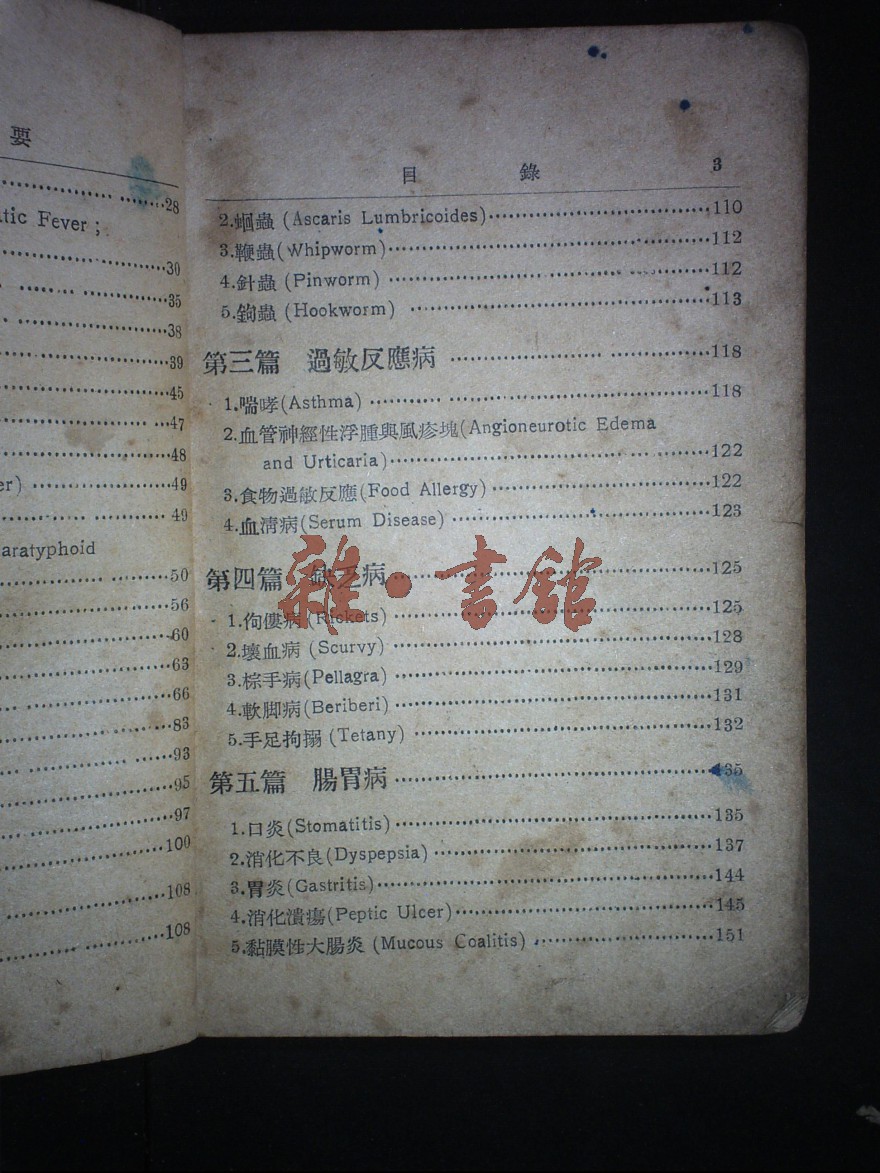 要
28
tic Fever;
30
35
38
39
45
47
48
er) 49
49
aratyphoid
50
56
60
63
66
83
93
95
97
100
108
108
目 錄 3
2.蛔蟲 (Ascaris Lumbricoides) 110
3.鞭蟲(Whipworm) 112
4.針蟲 (Pinworm) 112
5.鉤蟲 (Hookworm) 113
第三篇 過敏反應病 118
1.喘哮(Asthma) 118
2.血管神經性浮腫與風疹塊(Angioneurotic Edema
and Urticaria) 122
3.食物過敏反應(Food Allergy) 122
4.血清病(Serum Disease) 123
第四篇 缺乏病 125
1.佝僂病(Rickets) 125
2.壞血病 (Scurvy) 128
3.棕手病(Pellagra) 129
4.軟脚病(Beriberi) 131
5.手足拘搦 (Tetany) 132
第五篇 腸胃病 135
1.口炎(Stomatitis) 135
2.消化不良(Dyspepsia) 137
3.胃炎(Gastritis) 144
4.消化潰瘍(Peptic Ulcer) 145
5.黏膜性大腸炎 (Mucous Coalitis) 151
雜·書館